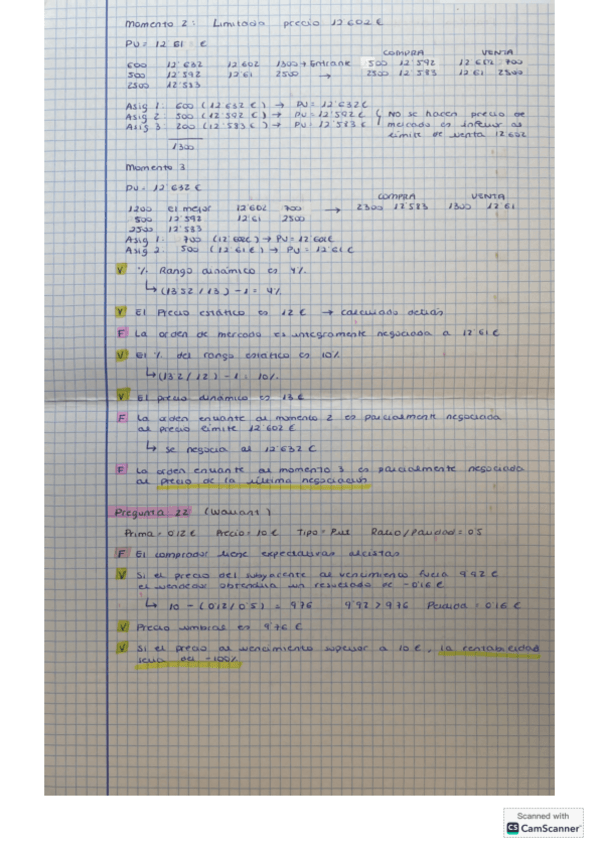 Momento 2: Limitada precio 12'602 €
PU = 12'61 €
COMPRA VENTA
600 12'632 12'602 1300 → Entrante 500 12'592 12'602 700
500 12'592 12'61 2500 → 2500 12'583 12'61 2500
2500 12'583
Asig 1: 600 (12'632 €) → PU = 12'632 €
Asig 2: 500 (12'592 €) → PU = 12'592 € No se hacen precio de
Asig 3: 200 (12'583 €) → PU = 12'583 € mercado es inferior al
límite de venta 12'602
1300
Momento 3
PU = 12'632 €
COMPRA VENTA
1200 el mejor 12'602 700 → 2500 12'583 1300 12'61
500 12'592 12'61 2500
2500 12'583
Asig 1: 700 (12'602 €) → PU = 12'602 €
Asig 2: 500 (12'61 €) → PU = 12'61 €
V % Rango dinámico es 4%
↳ (13'52 / 13) - 1 = 4%
V El Precio estático es 12 € → calculado detrás
F La orden de mercado es íntegramente negociada a 12'61 €
V El % del rango estático es 10%
↳ (13'2 / 12) - 1 = 10%
V El precio dinámico es 13 €
F La orden entrante al momento 2 es parcialmente negociada
al precio límite 12'602 €
↳ se negocia al 12'632 €
F La orden entrante al momento 3 es parcialmente negociada
al precio de la última negociación
Pregunta 22 (Warrant)
Prima = 0'12 € Acción = 10 € Tipo = Put Ratio/Paridad = 0'5
F El comprador tiene expectativas alcistas
V Si el precio del subyacente al vencimiento fuera 9'92 €
el obtendría un resultado de -0'16 €
↳ 10 - (0'12 / 0'5) = 9'76 9'92 > 9'76 Perdida = 0'16 €
V Precio umbral es 9'76 €
V Si el precio al vencimiento superior a 10 €, la rentabilidad
sería del -100%
Scanned with
CS CamScanner